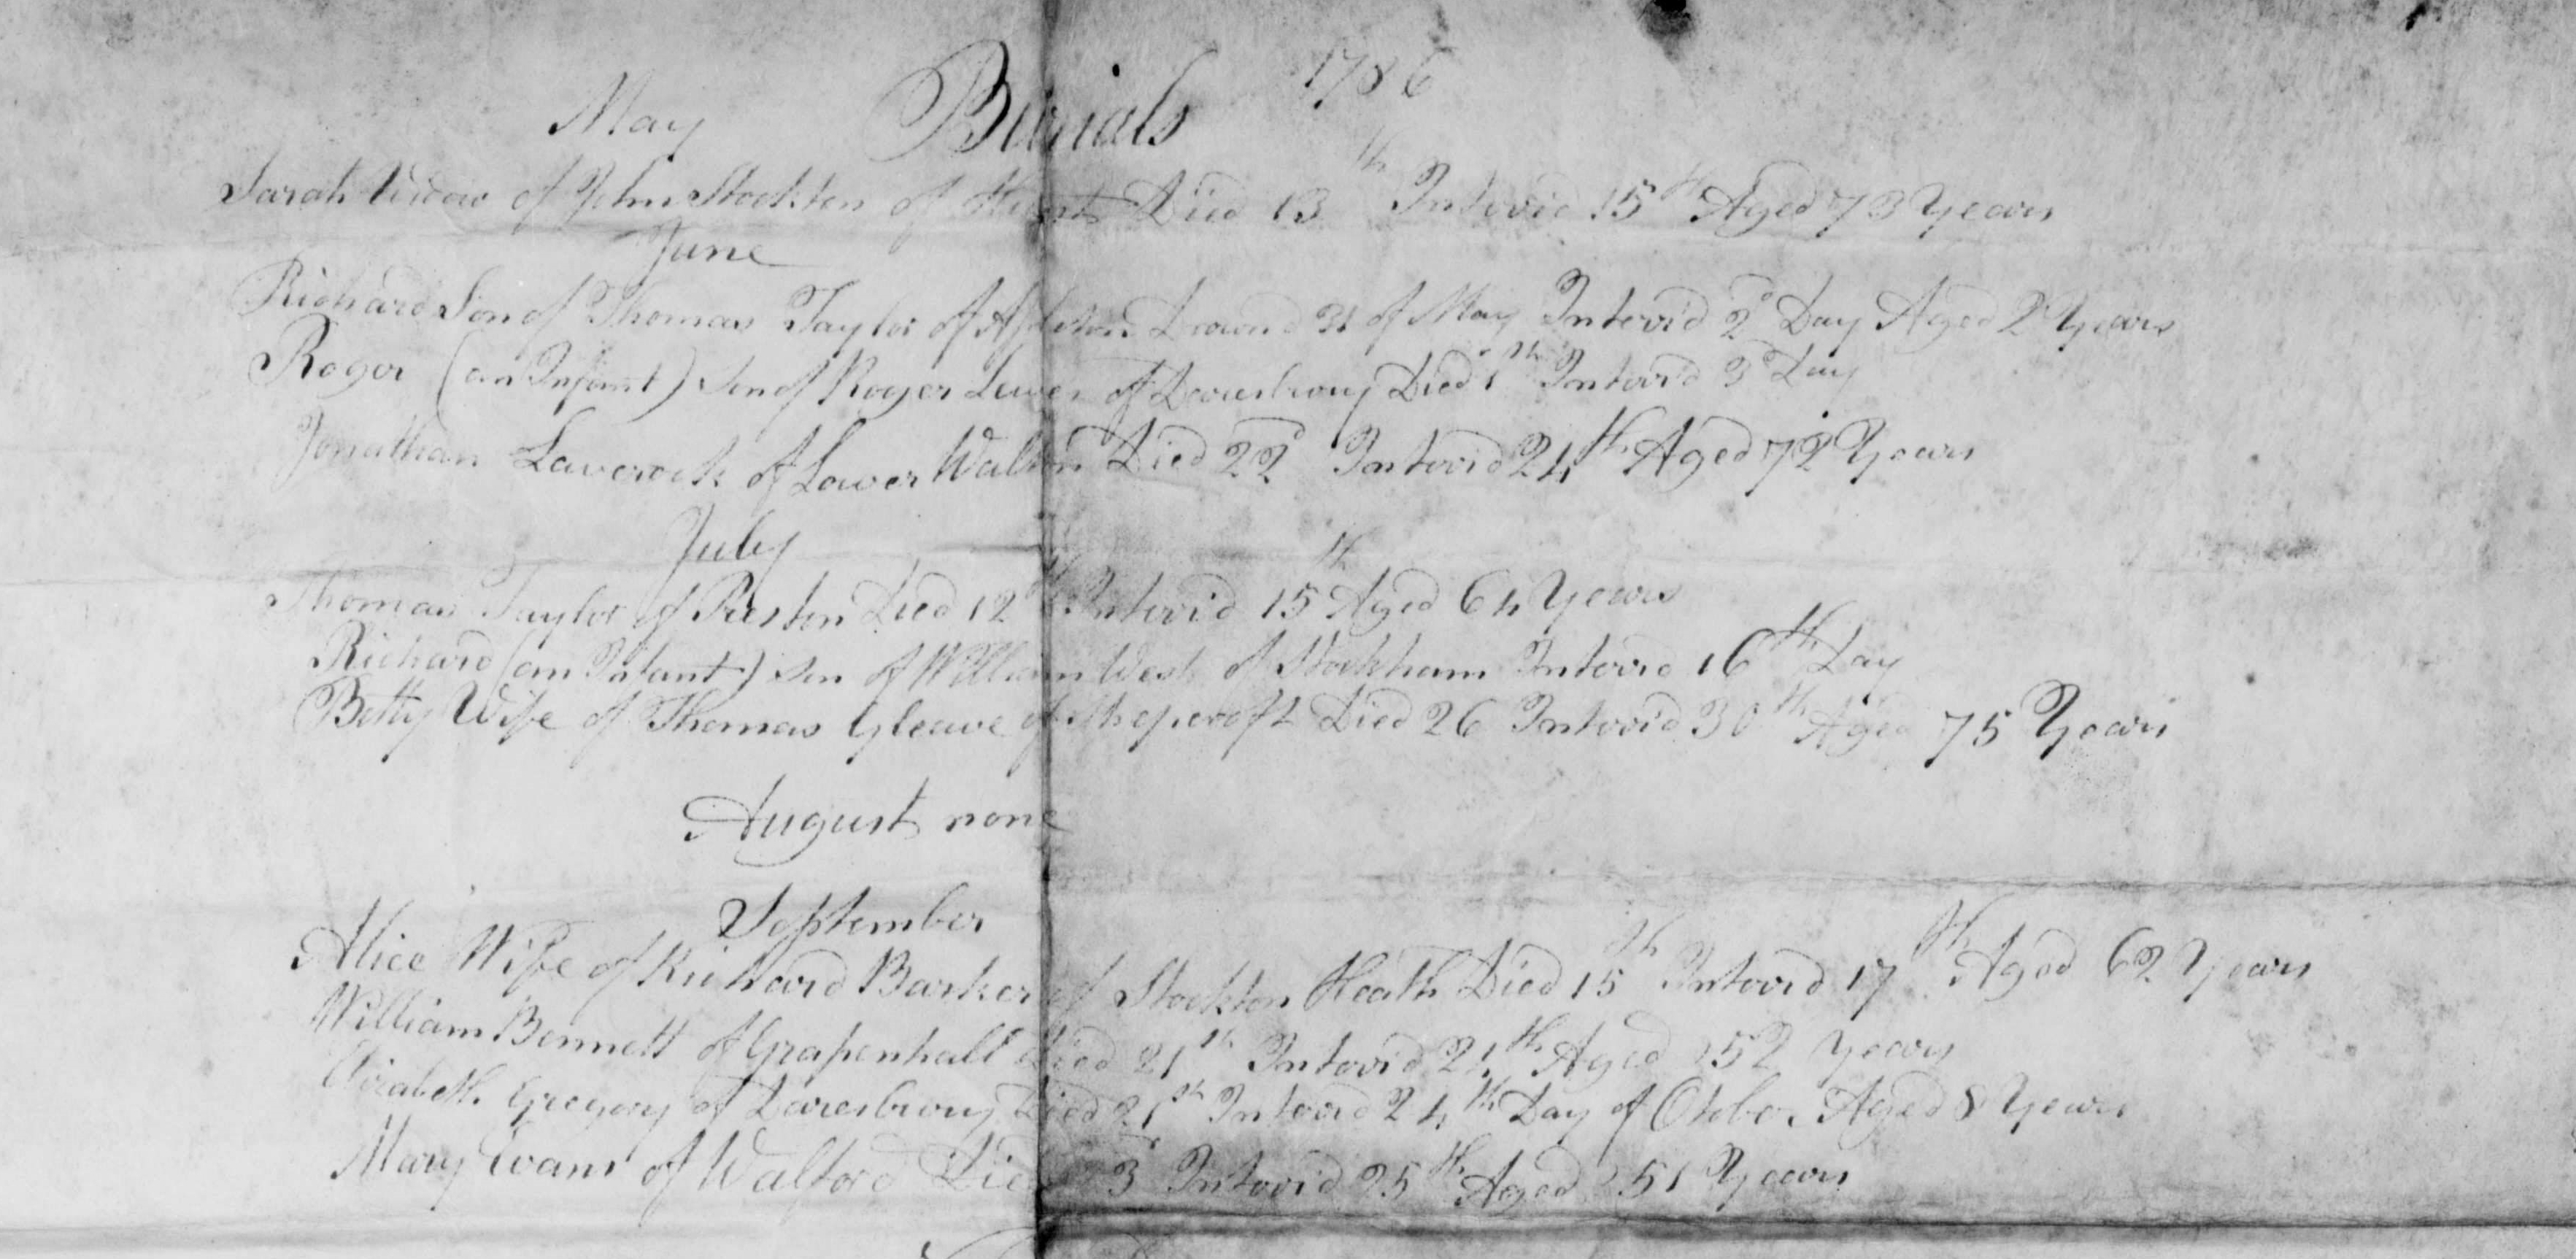 1786
May Burials
Sarah Widow of John Stockton of Died 13th Interrd 15th Aged 73 Years
June
Richard Son of Thomas Taylor of Appleton Drownd 31 of May Interrd 2d Day Aged 2 Years
Roger (an Infant) son of Roger Lewes of Daresbury Died 1st Interrd 3d Day
Jonathan Laverock of Lower Walton Died 22d Interrd 24th Aged 72 Years
July
Thomas Taylor of Preston Died 12th Interrd 15th Aged 64 Years
Richard (an Infant) son of William West of Stockham Interrd 16th Day
Betty Wife of Thomas Gleave of Died 26 Interrd 30th Aged 75 Years
August none
September
Alice Wife of Richard Barker of Stockton Heath Died 15th Interrd 17th Aged 62 Years
William Bennett of Grapenhall Died 21st Interrd 24th Aged 52 Years
Elizabeth Gregory of Daresbury Died 21st Interrd 24th Day of Aged 8 Years
Mary Evans of Walford Died 23d Interrd 25th Aged 51 Years